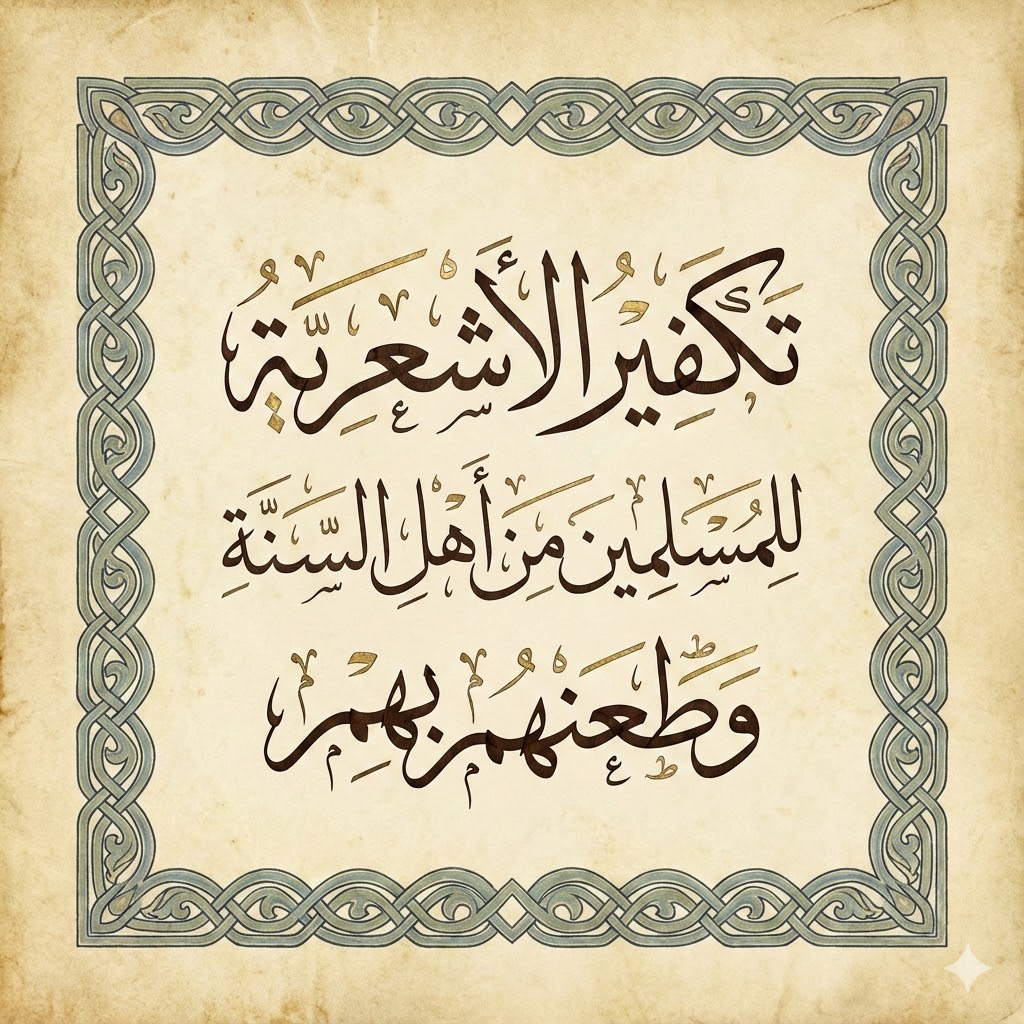 تَكْفِيرُ الأَشْعَرِيَّةُ
لِلمُسَلِمِينَ مَنَ أَهْلِ السَّنَّةِ
وَطَّعَنهُمْ بهِمْ